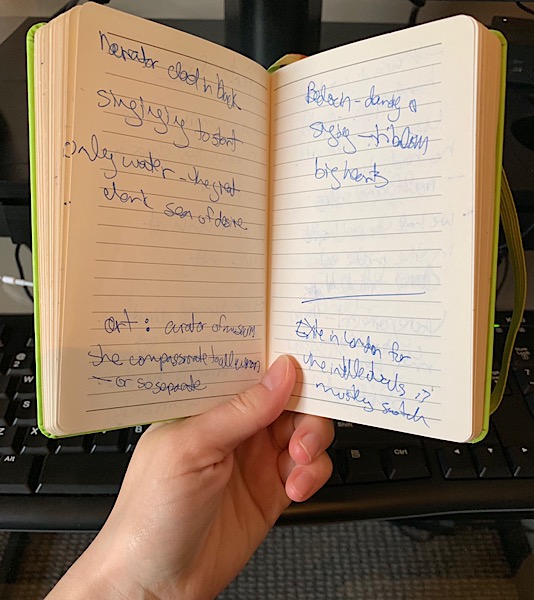 Narrator clad in black
singing to start
Only water - the great
dark sea of desire
art : curator of museum
the compassionate to all women
- or so separate
Bedouin - dancing &
singing - tribdom
big hearts
Exile in London for
the intellectuals is
musky scotch
Alt
Ctrl